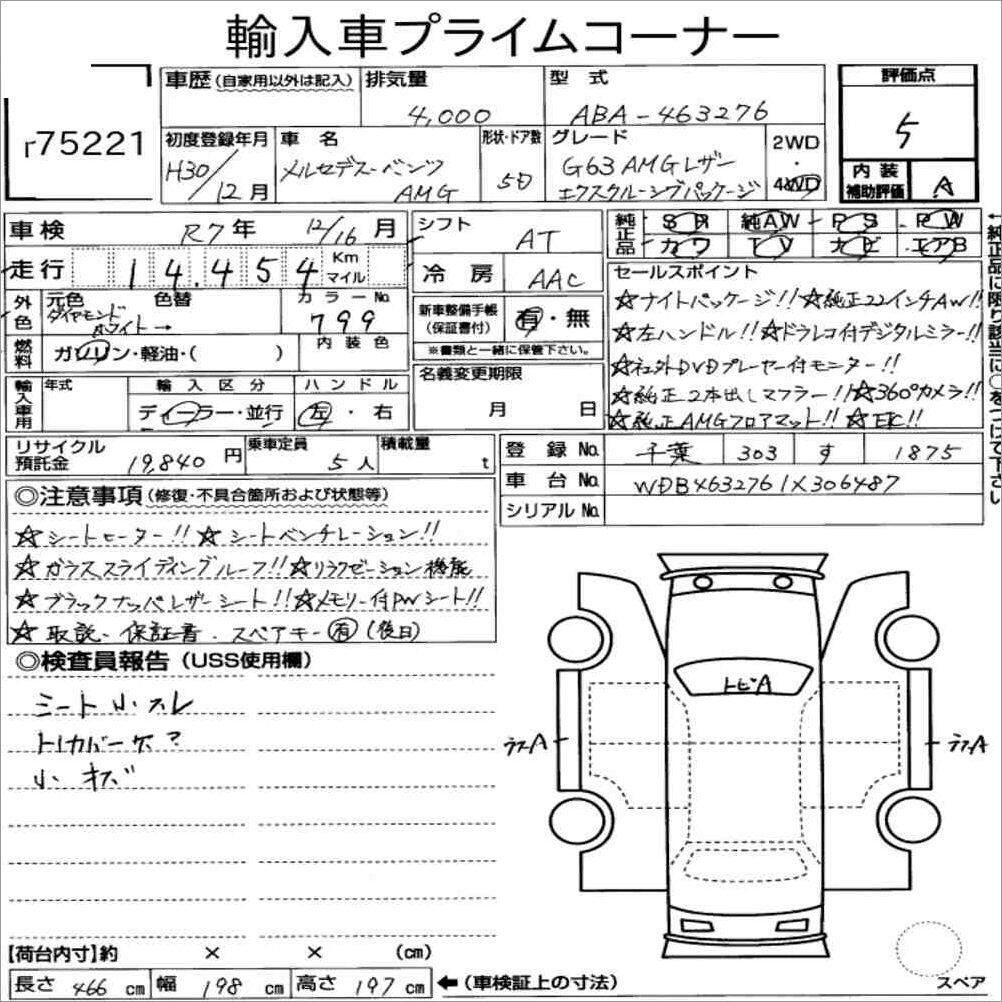 輸入車プライムコーナー
r75221
車歴(自家用以外は記入)
排気量
4,000
型 式
ABA-463276
評価点
5
初度登録年月
H30/12月
車 名
メルセデス-ベンツ
AMG
形状・ドア数
5D
グレード
G63 AMGレザー
エクスクルーシブパッケージ
2WD
・
4WD
内 装
補助評価
A
車検
R7年 12/16月
シフト
AT
純正品
SR 純AW PS PW
カワ TV ナビ エアB
走行
14.454
Km
マイル
冷 房
AAC
セールスポイント
☆ナイトパッケージ!!☆純正22インチAW!!
☆左ハンドル!!☆ドラレコ付デジタルミラー!!
☆社外DVDプレーヤー付モニター!!
☆純正2本出しマフラー!!☆360°カメラ!!
☆純正AMGフロアマット!!☆ETC!!
←純正品に限り該当に○をつけて下さい
外色
元色
ダイヤモンド
ホワイト→
色替
カラーNo.
799
内 装 色
新車整備手帳
(保証書付)
有・無
※書類と一緒に保管下さい。
燃料
ガソリン・軽油・( )
輸入車用
年式
輸 入 区 分
ディーラー・並行
ハ ン ド ル
左・右
名義変更期限
月 日
リサイクル
預託金
19,840円
乗車定員
5人
積載量
t
登 録 No.
千葉 303 す 1875
車 台 No.
WDB4632761X306487
シリアルNo.
◎注意事項(修復・不具合箇所および状態等)
☆シートヒーター!!☆シートベンチレーション!!
☆ガラススライディングルーフ!!☆リラクゼーション機能
☆ブラックナッパレザーシート!!☆メモリー付PWシート!!
☆取説、保証書、スペアキー有(後日)
◎検査員報告(USS使用欄)
シート小スレ
トノカバーケ?
小 キズ
トビA
ラスA
ラスA
【荷台内寸】約 × × (cm)
長さ 466 cm 幅 198 cm 高さ 197 cm ←(車検証上の寸法)
スペア